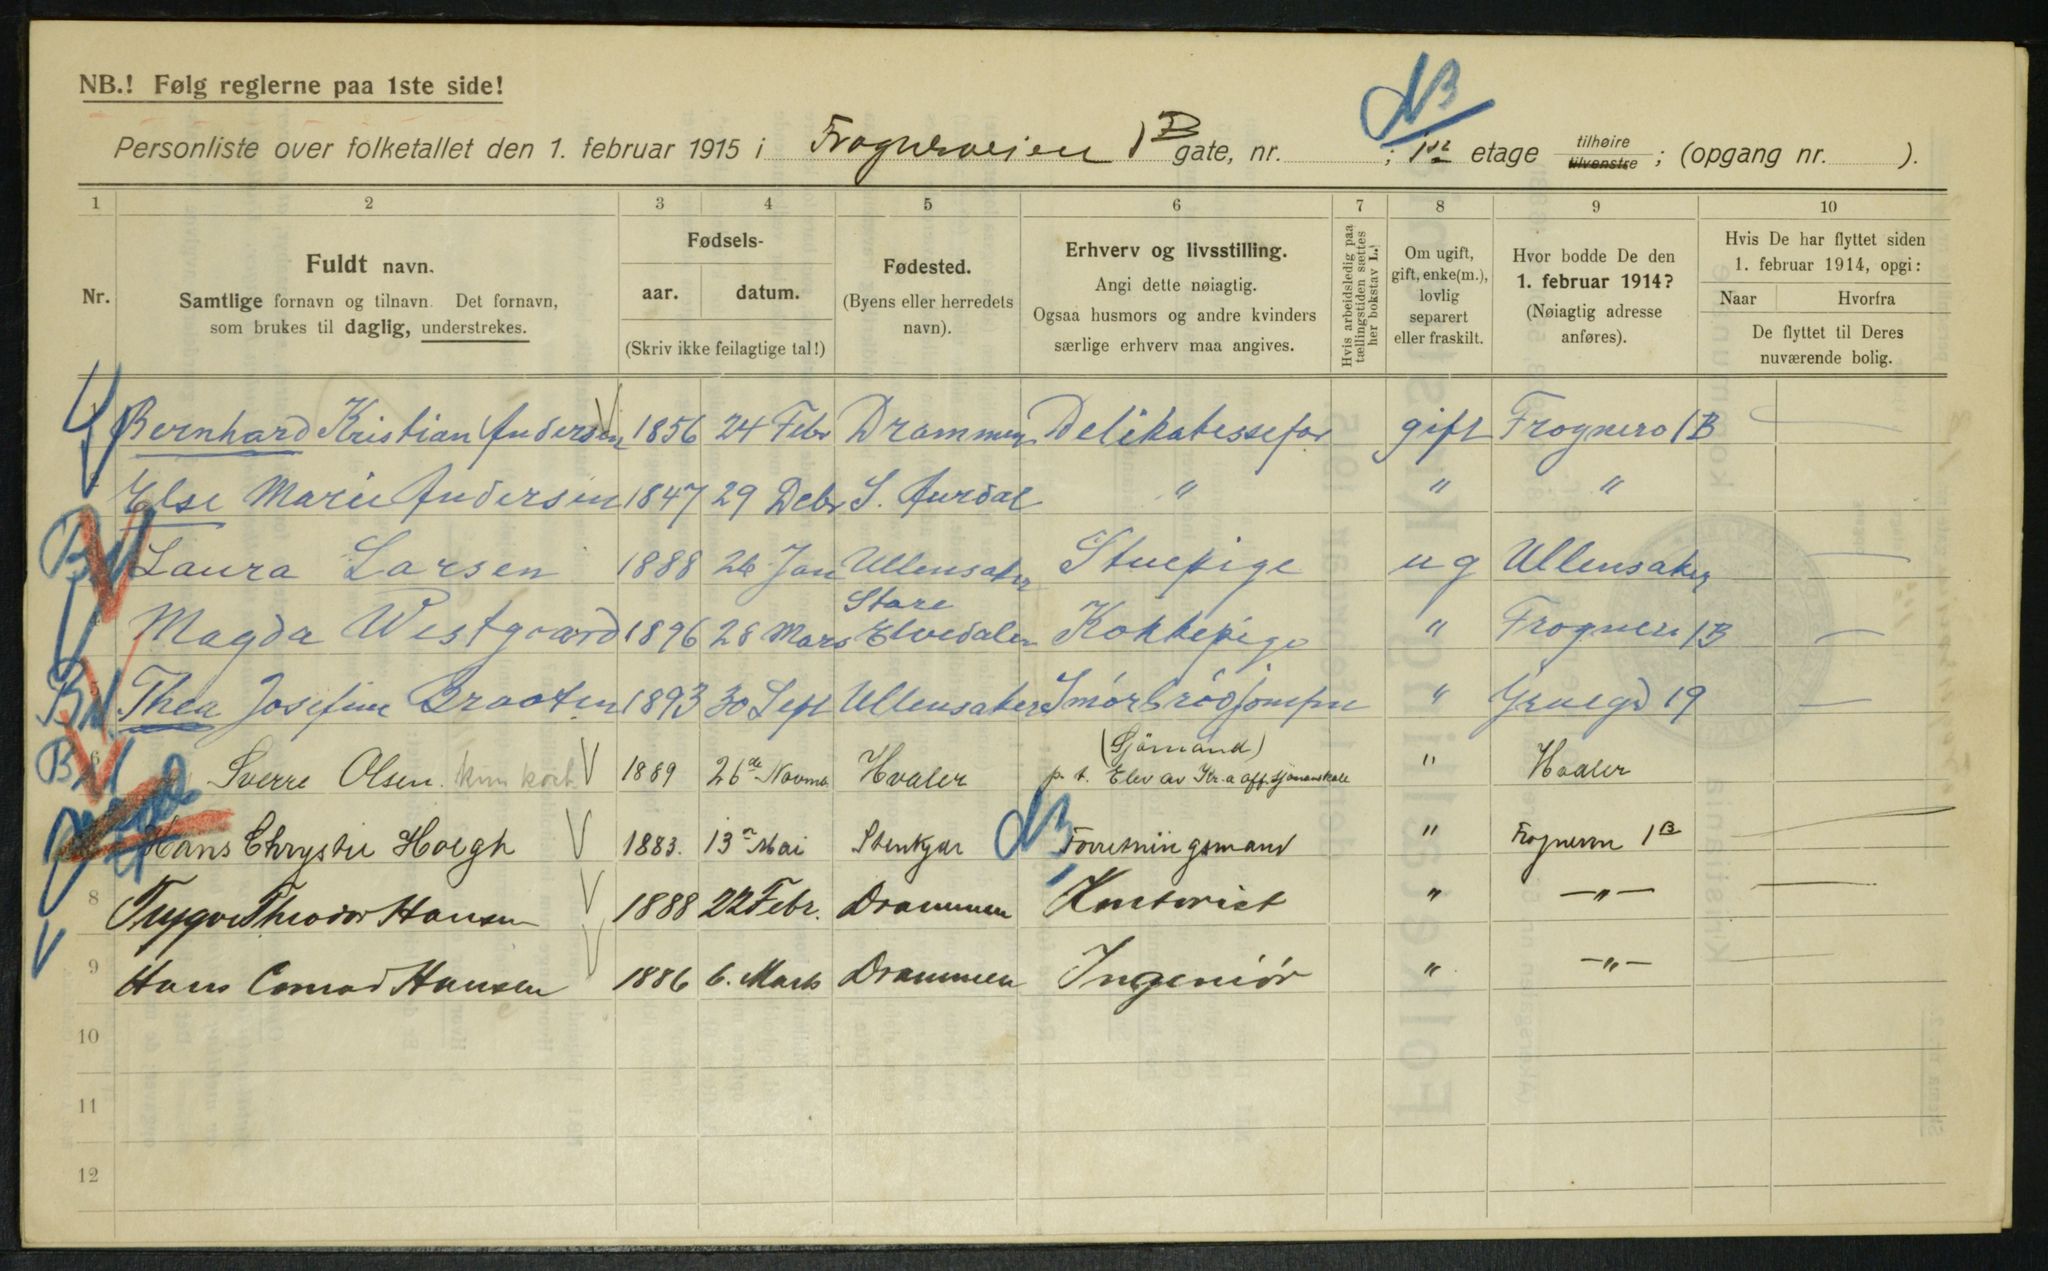 NB.! Følg reglerne paa 1ste side!
NB
Personliste over folketallet den 1. februar 1915 i Frognerveien 1B gate, nr. ; 1ste etage tilhøire tilvenstre ; (opgang nr. ).
1 2 3 4 5 6 7 8 9 10
Nr.
Fuldt navn.
Samtlige fornavn og tilnavn. Det fornavn,
som brukes til daglig, understrekes.
Fødsels-
aar. datum.
(Skriv ikke feilagtige tal!)
Fødested.
(Byens eller herredets
navn).
Erhverv og livsstilling.
Angi dette nøiagtig.
Ogsaa husmors og andre kvinders
særlige erhverv maa angives.
Hvis arbeidsledig paa
tællingstiden sættes
her bokstav L.!
Om ugift,
gift, enke(m.),
lovlig
separert
eller fraskilt.
Hvor bodde De den
1. februar 1914?
(Nøiagtig adresse
anføres).
Hvis De har flyttet siden
1. februar 1914, opgi:
Naar Hvorfra
De flyttet til Deres
nuværende bolig.
Bernhard Kristian Andersen 1856 24 Febr Drammen Delikatessefor gift Frognerv 1B —
Else Marie Andersen 1847 29 Debr S. Aurdal " " "
Laura Larsen 1888 26 Jan Ullensaker Stuepige ug Ullensaker —
Magda Westgaard 1896 28 Mars Store Elvedalen Kokkepige " Frognerv 1B —
5 Thea Josefine Braaten 1893 30 Sept Ullensaker Smørbrødjomfru " 19 —
6 Sverre Olsen. kun kort 1889 26de Novmb. Hvaler (Sjömand) p. t. Elev av Kr.a off. sjömanskole " Hvaler
Hans Chrystie Hoegh 1883. 13n Mai Stenkjær NB Forretningsmand " Frognervn 1B —
8 Trygve Theodor Hansen 1888 22 Febr. Drammen Kontorist " —"— —
9 Hans Conrad Hansen 1886 6. Marts Drammen Ingeniör " —"— —
10
11
12